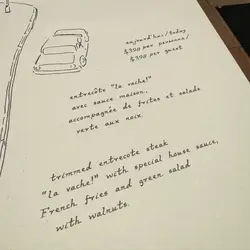 aujourd'hui/today
$390 per personne/
$390 per guest
entrecôte "la vache!"
avec sauce maison,
accompagnée de frites et salade
verte aux noix.
trimmed entrecote steak
"la vache!" with special house sauce,
French fries and green salad
with walnuts.